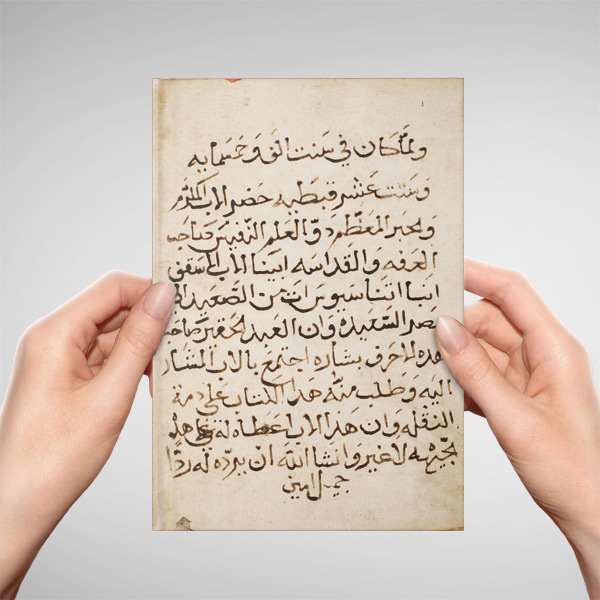 ولما كان في سنت الف وخمسمايه
وستت عشر قبطيه حضر الاب المكرم
ولحبر المعظم دو العلم النفيس صاحب
العفه والقداسه ابينا الاب الاسقف
انبا اتناسيوس ات من الصعيد الى
مصر السعيده وان العبد الحقير صاحب
هده الاحرف بشاره اجتمع بالاب المشار
اليه وطلب منه هدا الكتاب على دمة
النقله وان هدا الاب اعطاه له على هده
لا غير وانشا الله ان يرده له ردا
جميل امين